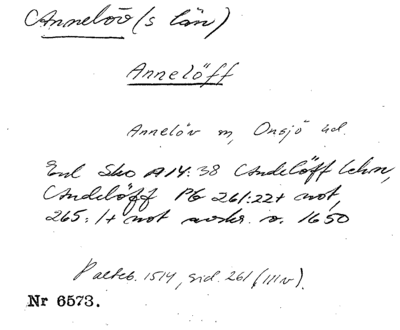 Annelöv (s län)
Annelöff
Annelöv sn, Onsjö hd.
Enl Sko A14:38 Andelöff lehn,
Andelöff PG 261:22+ not,
265:1+ not avskr. o. 1650
Palteb. 1514, sid. 261 (IIIv).
Nr 6573.